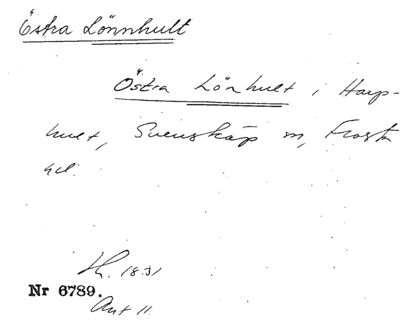 Östra Lönnhult
Östra Lönhult i Harp-
hult, Svensköp m, Frosta
hd.
Lh. 1831
Nr 6789.
Ant 11.